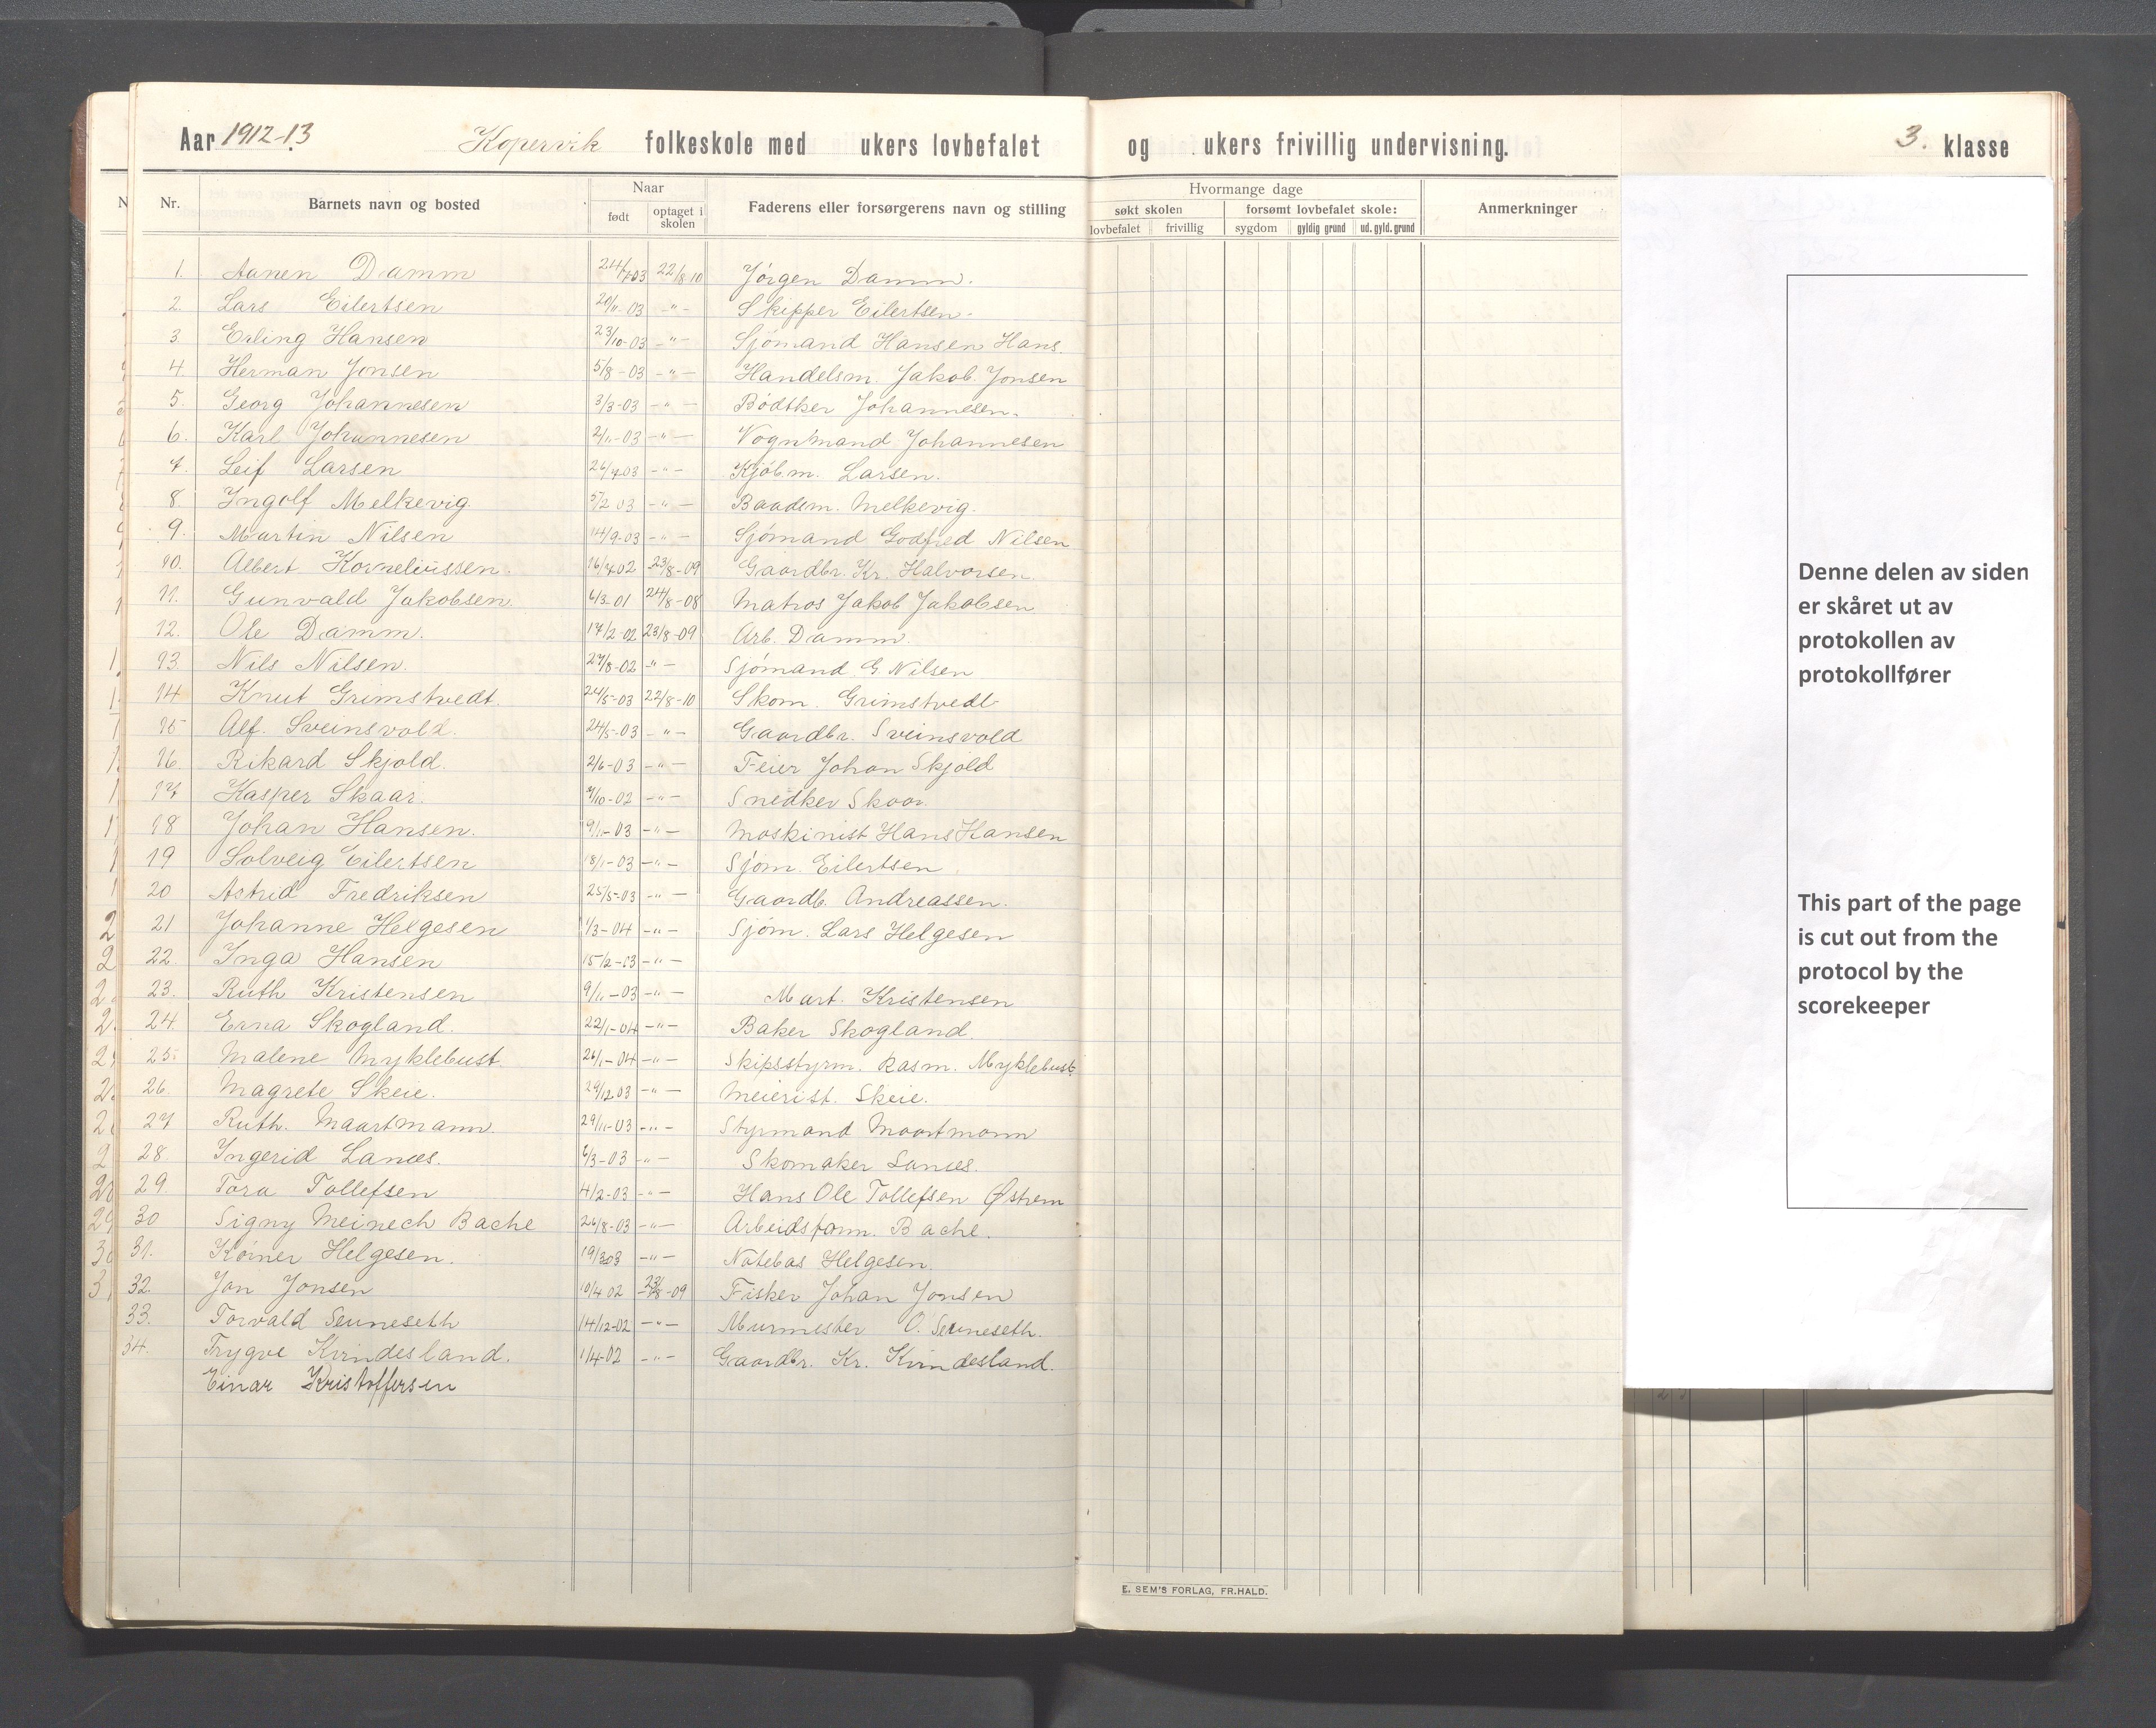 Aar 1912-13 Kopervik folkeskole med ukers lovbefalet og ukers frivillig undervisning. 3. klasse
Nr. Barnets navn og bosted Naar Faderens eller forsørgerens navn og stilling Hvormange dage Anmerkninger
født optaget i skolen søkt skolen forsømt lovbefalet skole:
lovbefalet frivillig sygdom gyldig grund ud. gyld. grund
1. Aanen Damm 24/7-03 22/8 10 Jørgen Damm.
2. Lars Eilertsen 20/11-03 -"- Skipper Eilertsen.
3. Erling Hansen 23/10-03 -"- Sjømand Hansen Hans.
4. Herman Jonsen 5/8-03 -"- Handelsm. Jakob Jonsen
5. Georg Johannesen 3/3-03 -"- Bødtker Johannesen.
6. Karl Johannesen 2/11-03 -"- Vognmand Johannesen
7. Leif Larsen 26/7 03 -"- Kjøbm. Larsen.
8. Ingolf Melkevig 5/2 03 -"- Baadsm. Melkevig.
9. Martin Nilsen 14/9-03 -"- Sjømand Godfred Nilsen
10. Albert Korneliussen. 16/7 02 23/8-09 Gaardbr. Kr. Halvorsen.
11. Gunvald Jakobsen. 6/3-01 24/8-08 Matros Jakob Jakobsen
12. Ole Damm. 17/2-02 23/8-09 Arb. Damm.
13. Nils Nilsen. 27/8-02 -"- Sjømand G. Nilsen
14 Knut Grimstvedt. 24/5-03 22/8-10 Skom. Grimstvedt
15 Alf. Sveinsvold. 24/5-03 -"- Gaardbr. Sveinsvold
16. Rikard Skjold. 2/6-03 -"- Feier Johan Skjold
17 Kasper Skaar. 7/10-02 -"- Snedker Skaar.
18 Johan Hansen. 9/11-03 -"- Maskinist Hans Hansen
19 Solveig Eilertsen 18/1-03 -"- Sjøm. Eilertsen
20 Astrid Fredriksen 25/5-03 -"- Gaardb. Andreassen.
21 Johanne Helgesen 1/3-04 -"- Sjøm. Lars Helgesen
22. Inga Hansen 15/2-03 -"-
23. Ruth Kristensen 9/11-03 -"- Mart. Kristensen
24. Erna Skogland. 22/1-04 -"- Baker Skogland.
25. Malene Myklebust 26/1-04 -"- Skipsstyrm. Rasm. Myklebust.
26. Magrete Skeie. 29/12 03 -"- Meierist. Skeie.
27 Ruth. Maartmann. 29/11-03 -"- Styrmand Maartmann
28. Ingerid Lanes. 6/3-03 -"- Skomaker Lanes.
29. Tora Tollefsen 4/2-03 -"- Hans Ole Tollefsen Østrem
30 Signy Meinech Bache 26/8-03 -"- Arbeidsform. Bache.
31. Helgesen. 19/3 03 -"- Notebas Helgesen.
32. Jon Jonsen 10/4 02 23/8-09 Fisker Johan Jonsen
33. Torvald Seuneseth 14/12-02 -"- Murmester O. Seuneseth.
34. Trygve Kvindesland. 1/4-02 -"- Gaardbr. Kr. Kvindesland.
Einar Kristoffersen
E. SEM'S FORLAG, FR.HALD.
Denne delen av siden
er skåret ut av
protokollen av
protokollfører
This part of the page
is cut out from the
protocol by the
scorekeeper